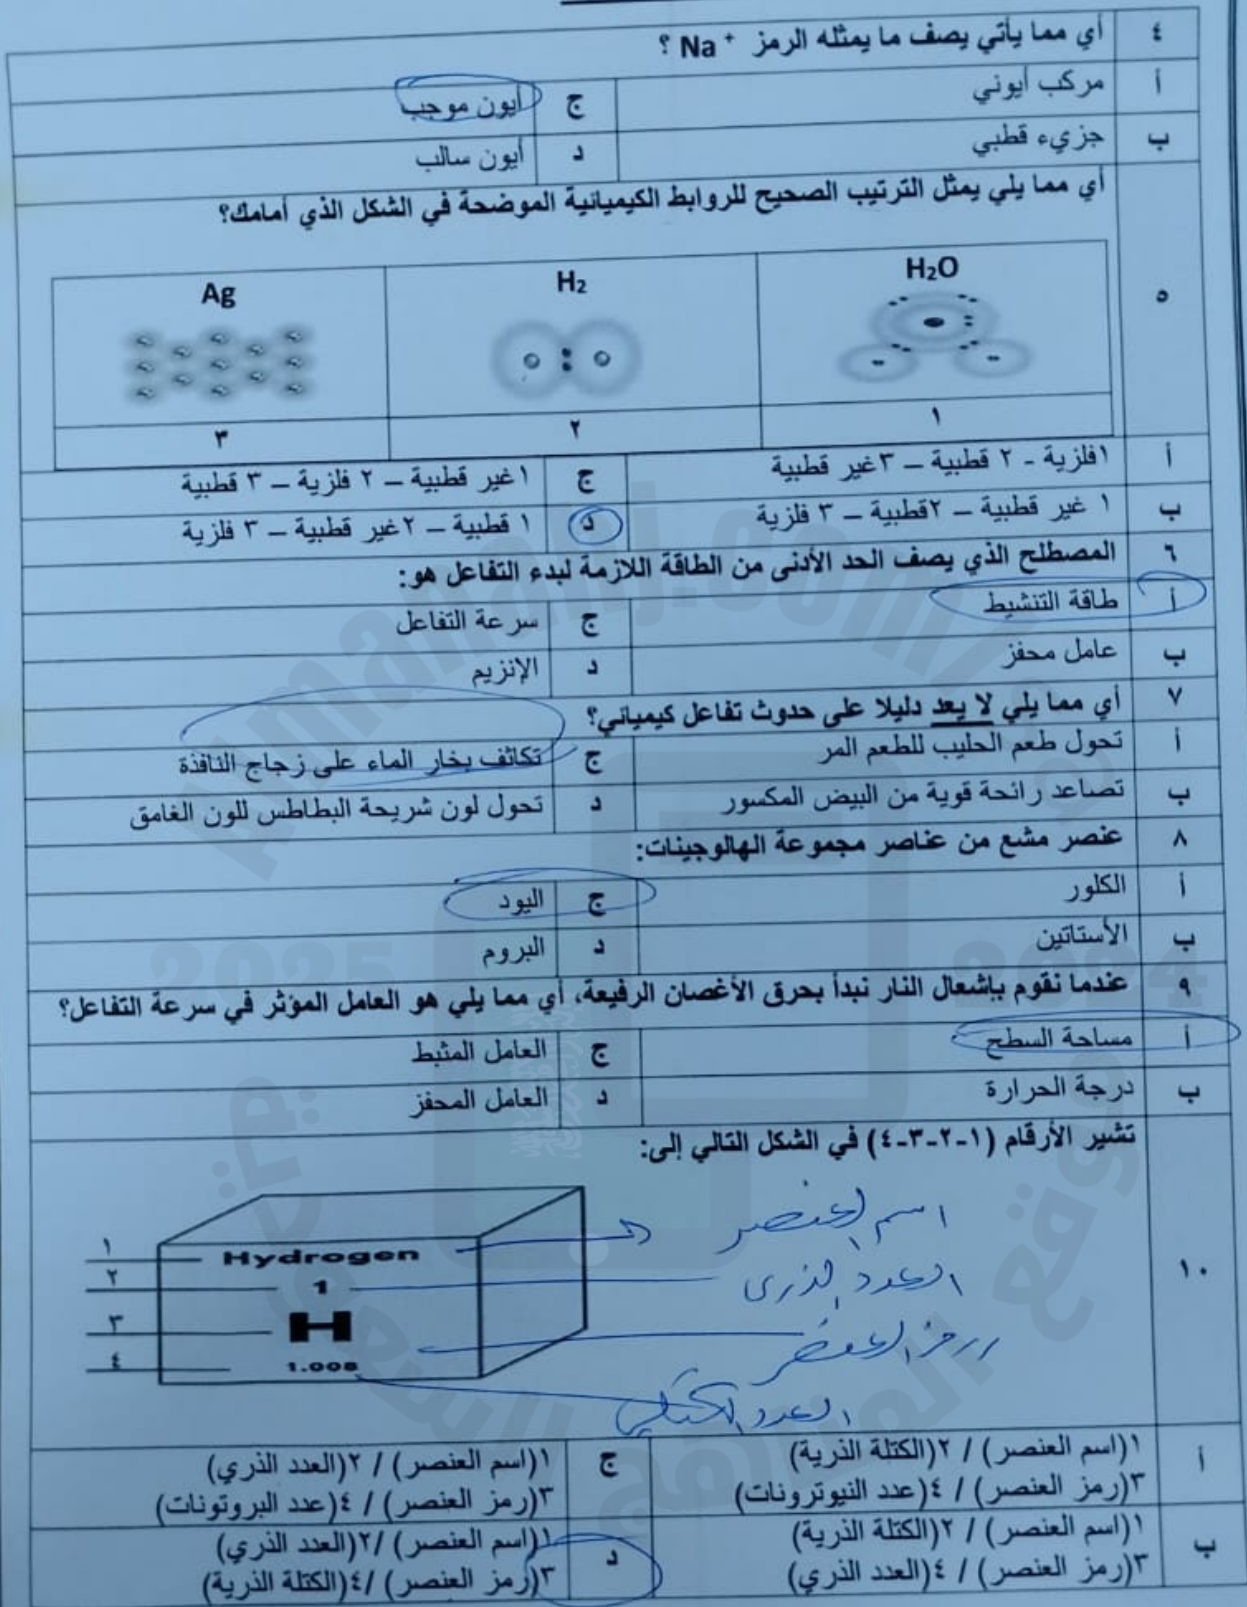 ٤ أي مما يأتي يصف ما يمثله الرمز Na⁺ ؟
أ مركب أيوني ج أيون موجب
ب جزيء قطبي د أيون سالب
٥ أي مما يلي يمثل الترتيب الصحيح للروابط الكيميائية الموضحة في الشكل الذي أمامك؟
H₂O H₂ Ag
١ ٢ ٣
أ ١فلزية - ٢ قطبية – ٣غير قطبية ج ١غير قطبية – ٢ فلزية – ٣ قطبية
ب ١ غير قطبية – ٢قطبية – ٣ فلزية د ١ قطبية – ٢غير قطبية – ٣ فلزية
٦ المصطلح الذي يصف الحد الأدنى من الطاقة اللازمة لبدء التفاعل هو:
أ طاقة التنشيط ج سرعة التفاعل
ب عامل محفز د الإنزيم
٧ أي مما يلي لا يعد دليلا على حدوث تفاعل كيميائي؟
أ تحول طعم الحليب للطعم المر ج تكاثف بخار الماء على زجاج النافذة
ب تصاعد رائحة قوية من البيض المكسور د تحول لون شريحة البطاطس للون الغامق
٨ عنصر مشع من عناصر مجموعة الهالوجينات:
أ الكلور ج اليود
ب الأستاتين د البروم
٩ عندما نقوم بإشعال النار نبدأ بحرق الأغصان الرفيعة، أي مما يلي هو العامل المؤثر في سرعة التفاعل؟
أ مساحة السطح ج العامل المثبط
ب درجة الحرارة د العامل المحفز
١٠ تشير الأرقام (١-٢-٣-٤) في الشكل التالي إلى:
١ Hydrogen اسم العنصر
٢ 1 العدد الذري
٣ H رمز العنصر
٤ 1.008 العدد الكتلي
أ ١(اسم العنصر) / ٢(الكتلة الذرية) ج ١(اسم العنصر) / ٢(العدد الذري)
٣(رمز العنصر) / ٤(عدد النيوترونات) ٣(رمز العنصر) / ٤(عدد البروتونات)
ب ١(اسم العنصر) / ٢(الكتلة الذرية) د ١(اسم العنصر) / ٢(العدد الذري)
٣(رمز العنصر) / ٤(العدد الذري) ٣(رمز العنصر) /٤(الكتلة الذرية)